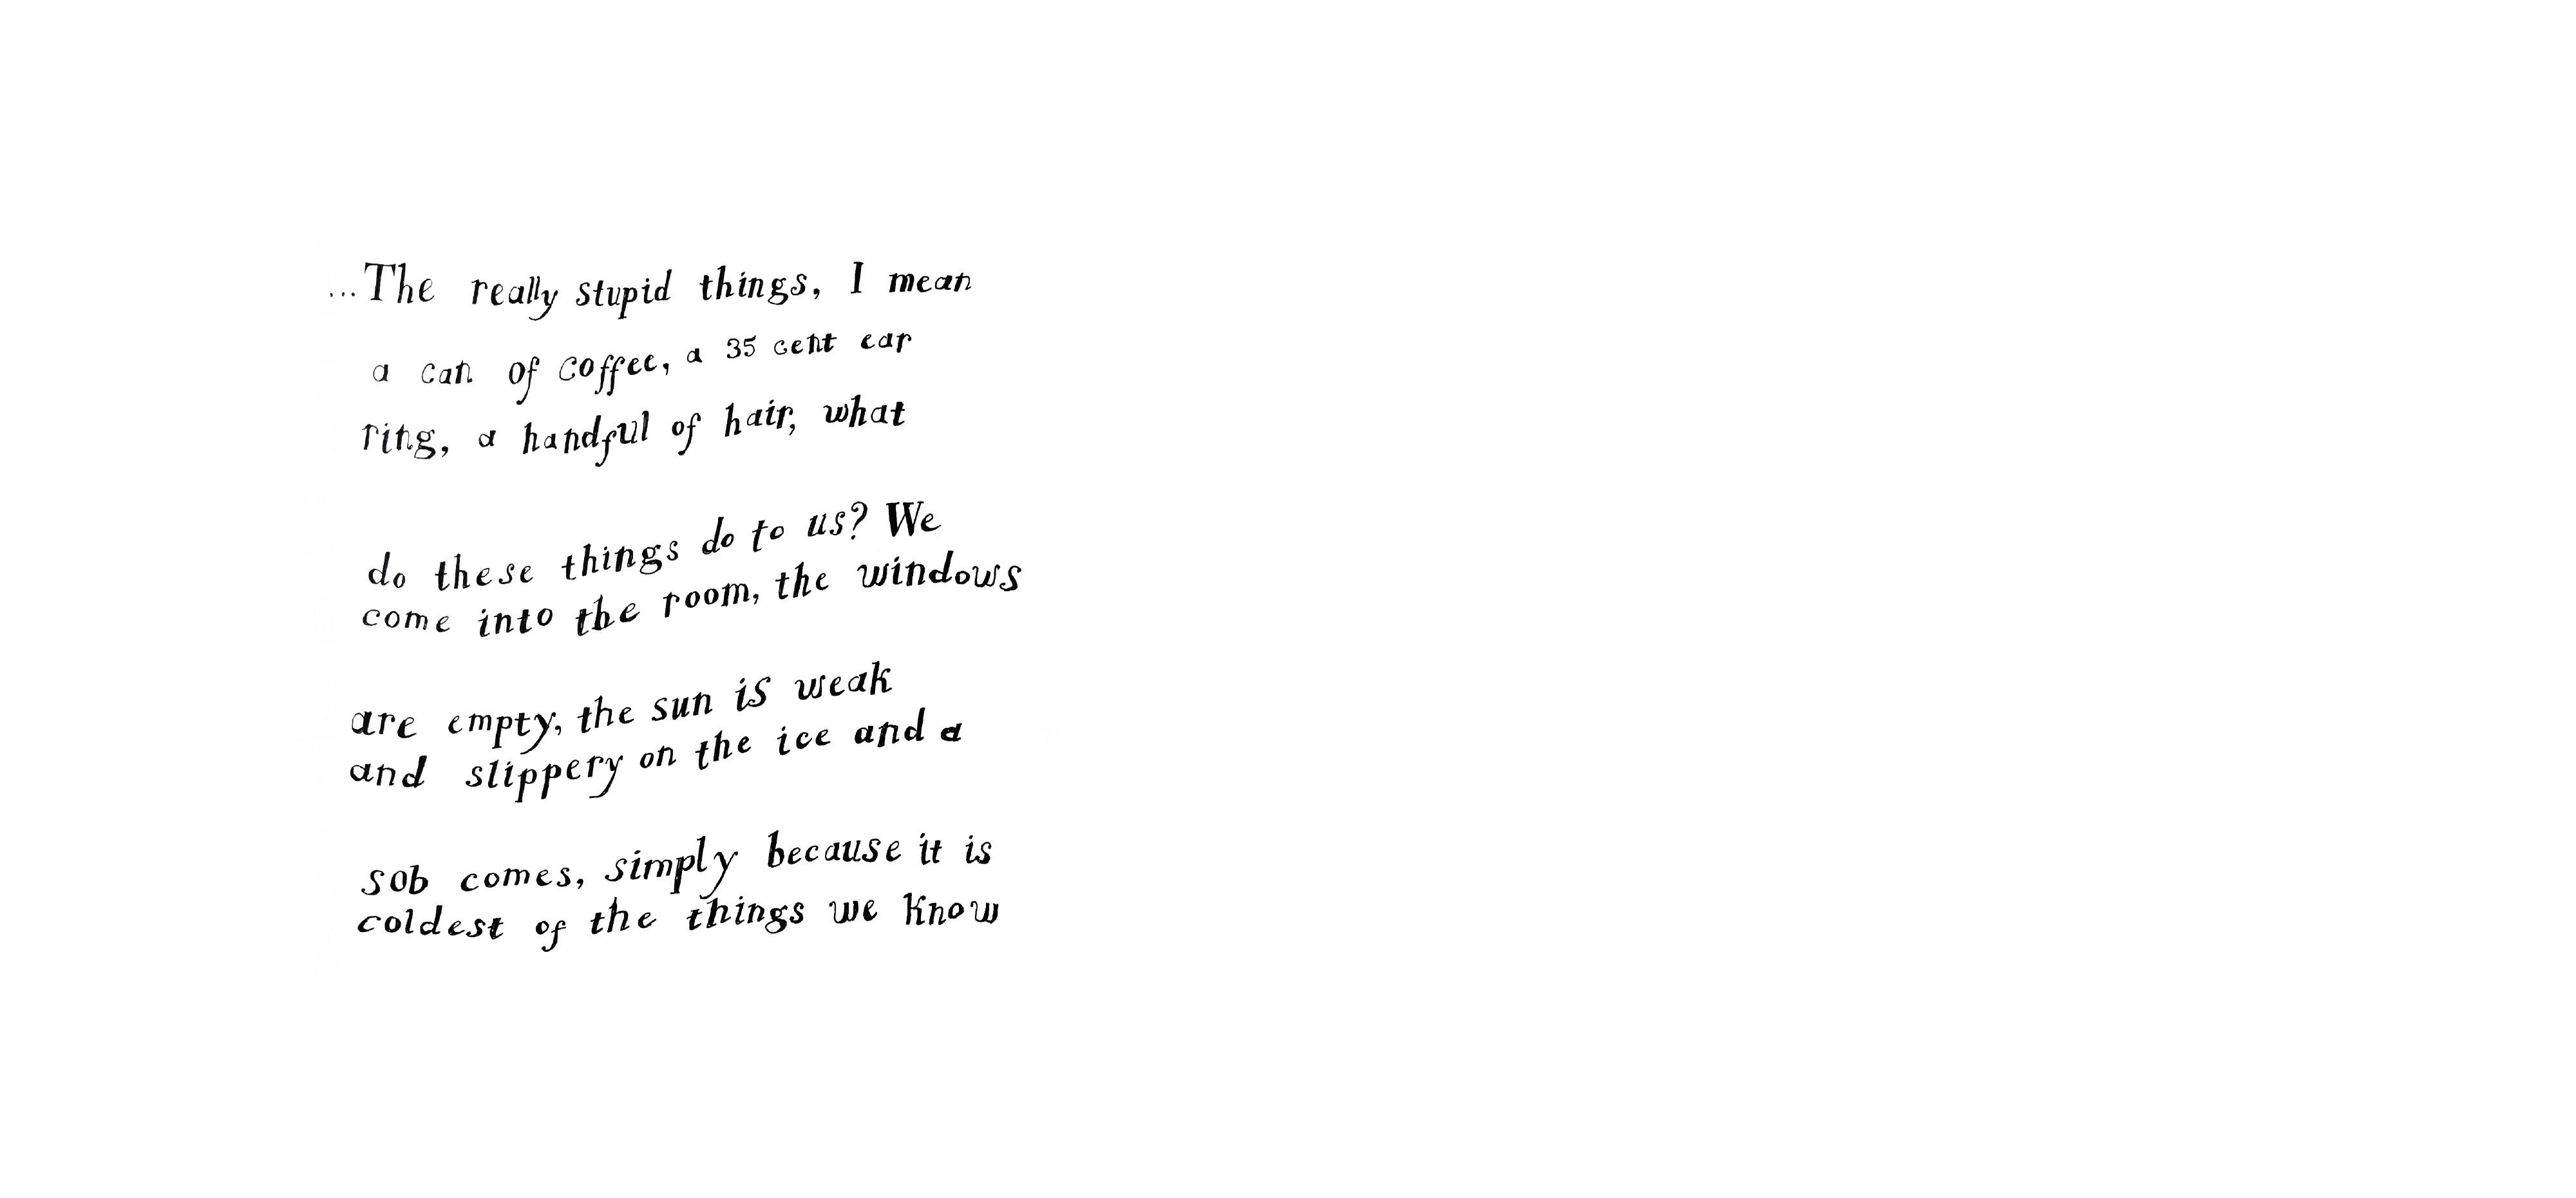 ...The really stupid things, I mean
a can of coffee, a 35 cent ear
ring, a handful of hair, what
do these things do to us? We
come into the room, the windows
are empty, the sun is weak
and slippery on the ice and a
sob comes, simply because it is
coldest of the things we know